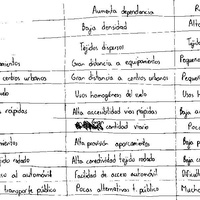 Aumenta dependencia
Baja densidad Alta
Tejidos dispersos Tejido
amientos Gran distancia a equipamientos Pequeña
centros urbanos Gran distancia a centros urbanos Pequeña
Usos homogéneos del suelo Usos
s rápidas Alta accesibilidad vías rápidas Baja
cantidad viario Poca
mientos Alta provisión aparcamientos Baja p
ejido rodado Alta conectividad tejido rodado Baja c
eso al automóvil Facilidad de acceso automóvil Dificult
transporte público Pocas alternativas t. público Mucha